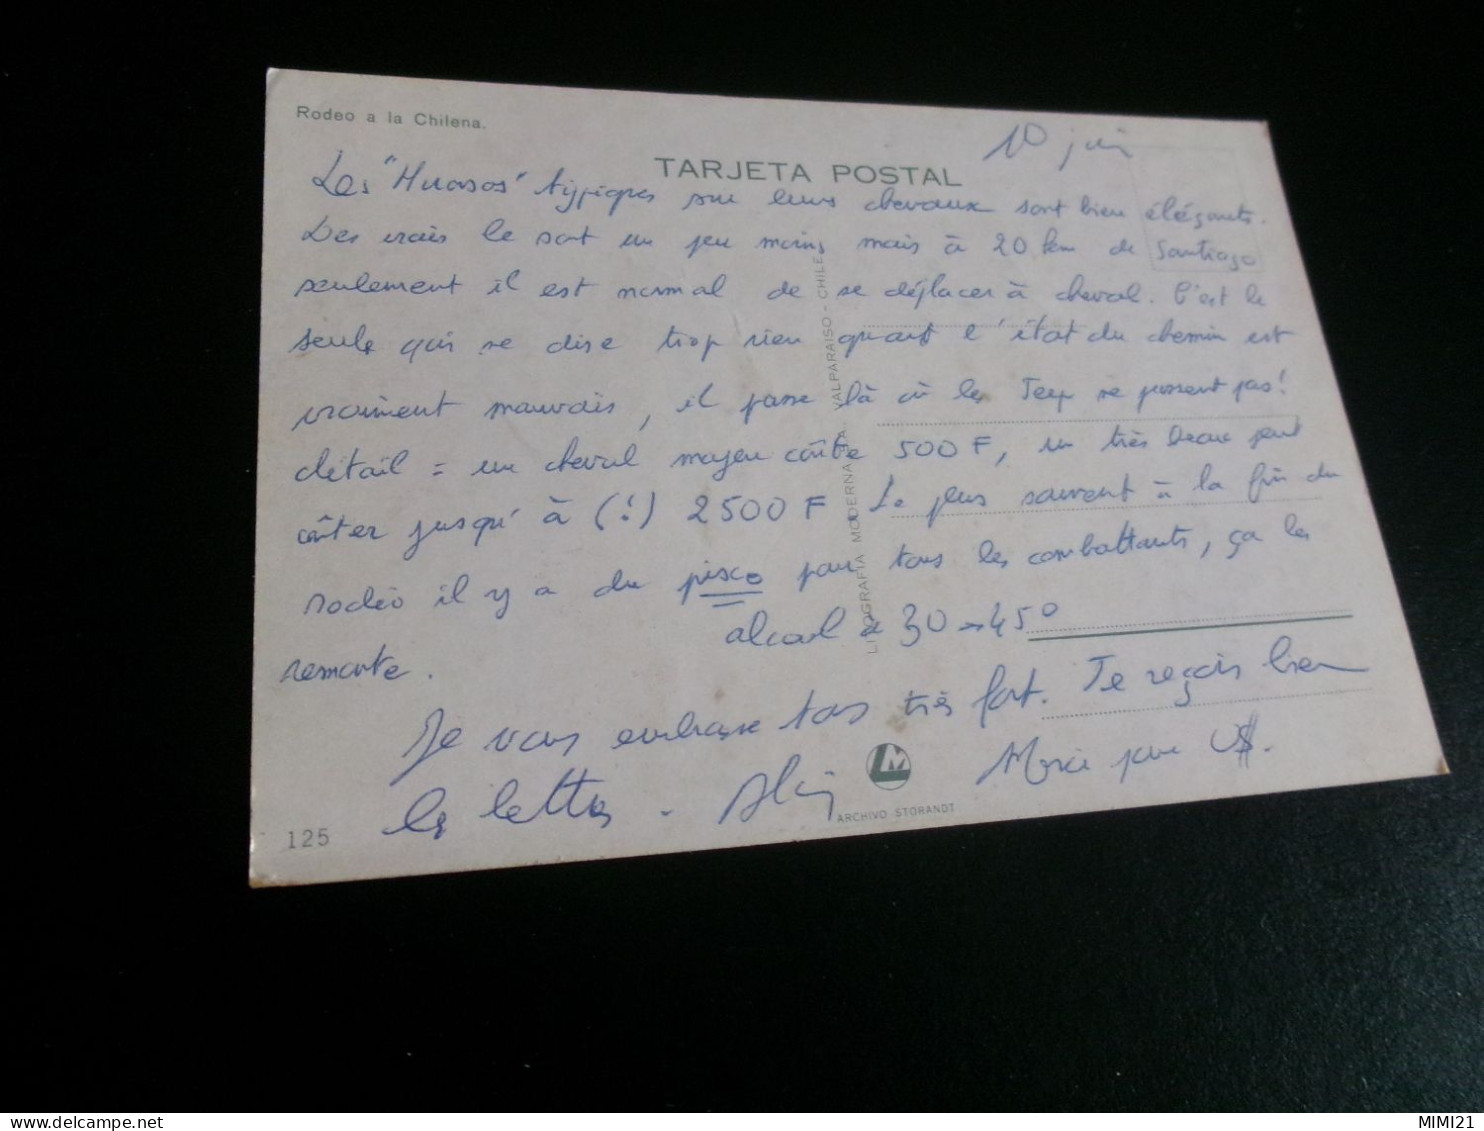 Rodeo a la Chilena.
10 juin
TARJETA POSTAL
Les "Huasos" typiques sur leurs chevaux sont bien élégants.
Des vrais le sont un peu moins mais à 20 km de Santiago
seulement il est normal de se déplacer à cheval. C'est le
seule qui ne dise trop rien quant l'état du chemin est
vraiment mauvais, il passe là où les Jeep ne passent pas!
détail = un cheval moyen coûte 500 F, un très beau peut
coûter jusqu'à (!) 2500 F. Le plus souvent à la fin du
rodéo il y a du pisco pour tous les combattants, ça les
alcool à 30 → 45°
remonte.
Je vous embrasse tous très fort. Je reçois bien
les lettres. Merci pour U$.
LITOGRAFIA MODERNA S.A. - VALPARAISO - CHILE
LM
ARCHIVO STORANDT
125
delcampe.net
MIMI21